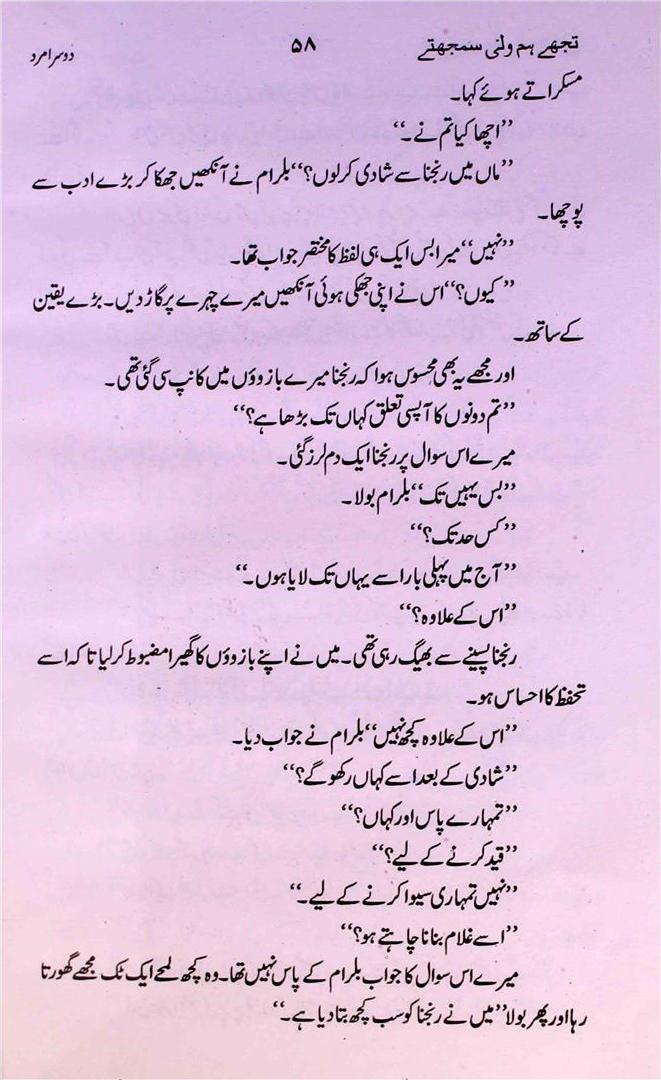 تجھے ہم ولی سمجھتے ۵۸ دوسرا مرد
مسکراتے ہوئے کہا۔
’’اچھا کیا تم نے۔‘‘
’’ماں میں رنجنا سے شادی کرلوں؟‘‘ بلرام نے آنکھیں جھکا کر بڑے ادب سے
پوچھا۔
’’نہیں‘‘ میرا بس ایک ہی لفظ کا مختصر جواب تھا۔
’’کیوں؟‘‘ اس نے اپنی جھکی ہوئی آنکھیں میرے چہرے پر گاڑ دیں۔ بڑے یقین
کے ساتھ۔
اور مجھے یہ بھی محسوس ہوا کہ رنجنا میرے بازوؤں میں کانپ سی گئی تھی۔
’’تم دونوں کا آپسی تعلق کہاں تک بڑھا ہے؟‘‘
میرے اس سوال پر رنجنا ایک دم لرز گئی۔
’’بس یہیں تک‘‘ بلرام بولا۔
’’کس حد تک؟‘‘
’’آج میں پہلی بار اسے یہاں تک لایا ہوں۔‘‘
’’اس کے علاوہ؟‘‘
رنجنا پسینے سے بھیگ رہی تھی۔ میں نے اپنے بازوؤں کا گھیرا مضبوط کرلیا تاکہ اسے
تحفظ کا احساس ہو۔
’’اس کے علاوہ کچھ نہیں‘‘ بلرام نے جواب دیا۔
’’شادی کے بعد اسے کہاں رکھو گے؟‘‘
’’تمہارے پاس اور کہاں؟‘‘
’’قید کرنے کے لیے؟‘‘
’’نہیں تمہاری سیوا کرنے کے لیے۔‘‘
’’اسے غلام بنانا چاہتے ہو؟‘‘
میرے اس سوال کا جواب بلرام کے پاس نہیں تھا۔ وہ کچھ لمحے ایک ٹک مجھے گھورتا
رہا اور پھر بولا ’’میں نے رنجنا کو سب کچھ بتا دیا ہے۔‘‘